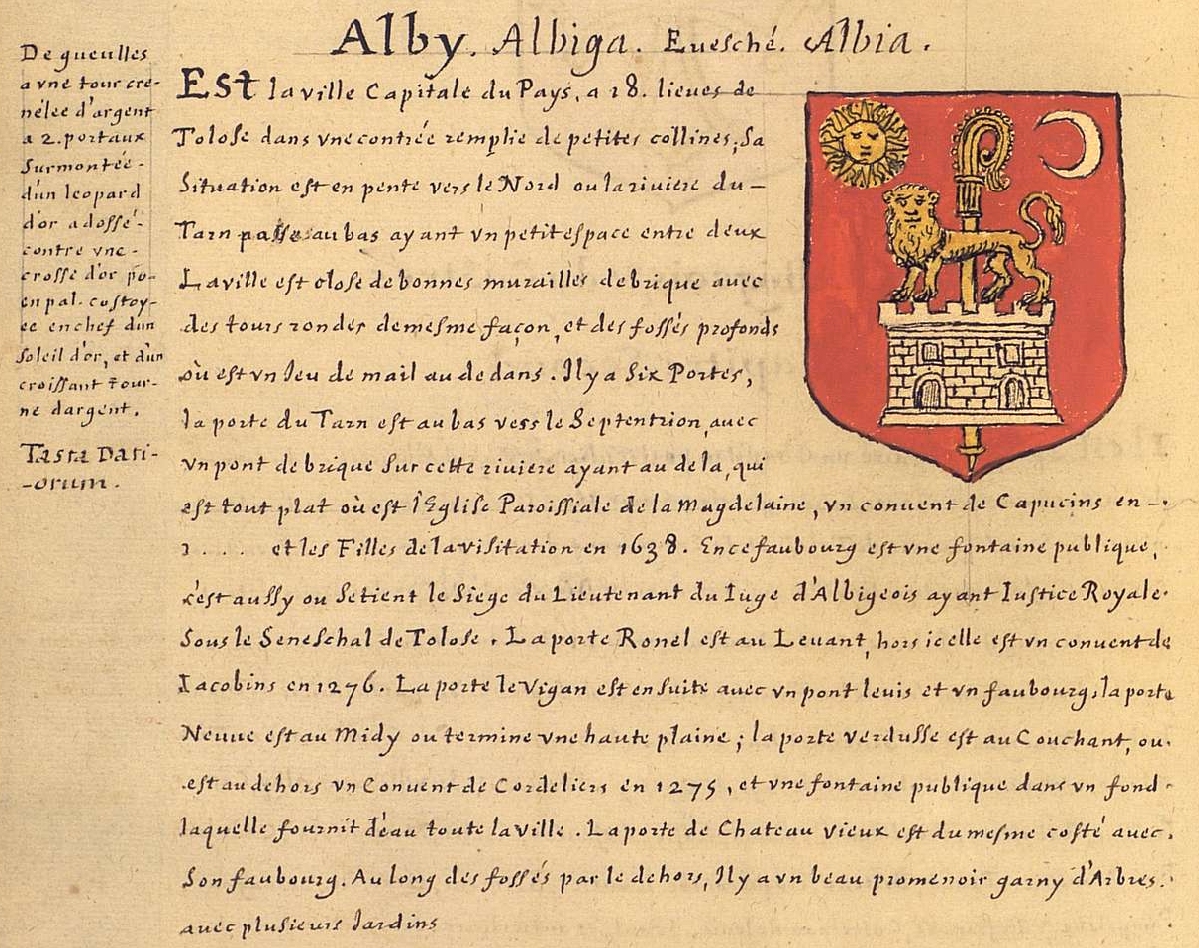 Alby. Albiga. Euesché. Albia.
De gueulles
a vne tour cre-
nelée d'argent
a 2. portaux
surmontée -
d'un leopard
d'or adossé -
contre vne -
crosse d'or po-
en pal. costoy-
ee en chef d'un
soleil d'or, et d'un
croissant tour-
né dargent.
Tasta Dati-
-orum.
Est la ville Capitale du Pays, a 18. lieues de
Tolose dans vne contrée remplie de petites collines; Sa
Situation est en pente vers le Nord ou la riviere du -
Tarn passe au bas ayant vn petit espace entre deux
La ville est close de bonnes murailles de brique avec
des tours rondes de mesme façon, et des fossés profonds
où est vn Jeu de mail au dedans. Il y a Six Portes,
la porte du Tarn est au bas vers le Septentrion, avec
vn pont de brique sur cette riviere ayant au de la, qui
est tout plat où est l'Eglise Paroissiale de la Magdelaine, vn conuent de Capucins en -
1 . . . . et les Filles de la visitation en 1638. En ce faubourg est vne fontaine publique,
c'est aussy ou se tient le Siege du Lieutenant du Iuge d'Albigeois ayant Iustice Royale.
Sous le Seneschal de Tolose. La porte Ronel est au Leuant, hors icelle est vn conuent de
Iacobins en 1276. La porte le Vigan est en suite avec vn pont leuis et vn faubourg, la porte
Neuue est au Midy ou termine vne haute plaine; la porte verdusse est au Couchant, ou
est au dehors vn Conuent de Cordeliers en 1275, et vne fontaine publique dans vn fond
laquelle fournit d'eau toute la ville. La porte de Chateau vieux est du mesme costé avec
Son faubourg. Au long des fossés par le dehors, Il y a vn beau promenoir garny d'Arbres.
avec plusieurs Jardins